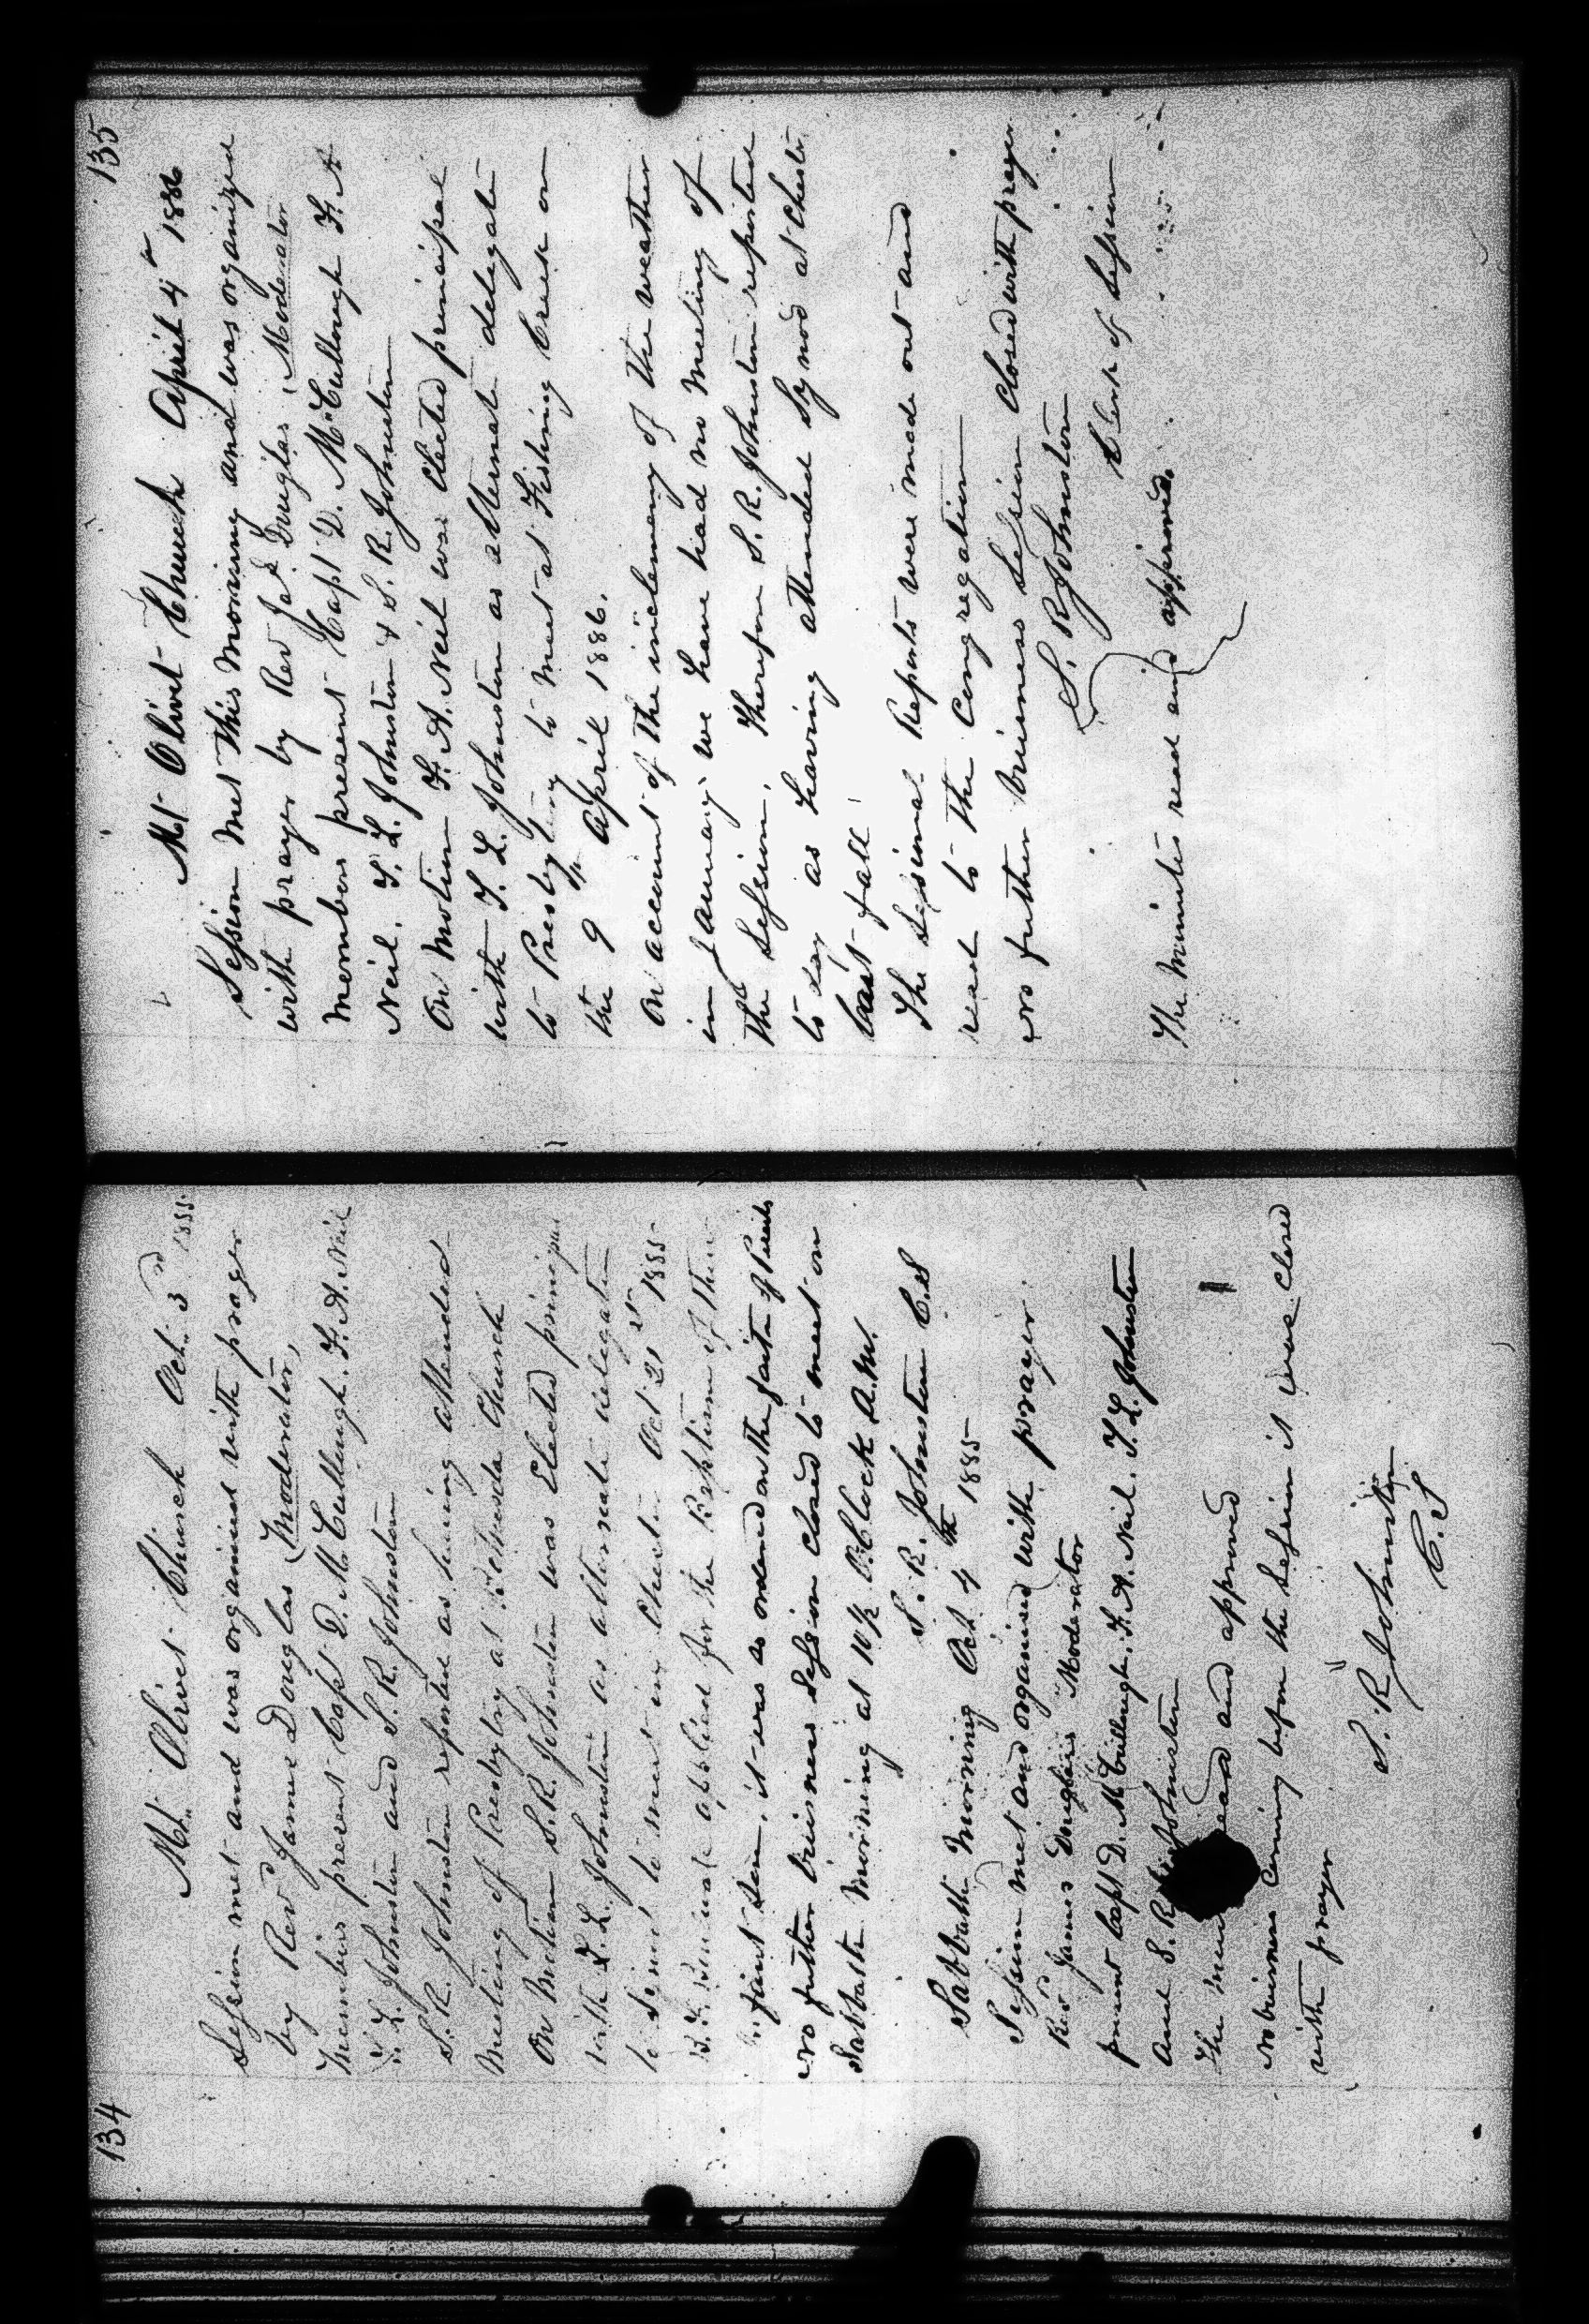 134
Mt. Olivet Church Oct. 3rd 1885.
Session met and was organised with prayer
by Revd James Douglas, Moderator,
Members present Capt D. McCullough. F. A. Neil
T. L. Johnston and S. R. Johnston
S. R. Johnston reported as having attended
Meeting of Presbytry at Bethesda Church
On Motion S. R. Johnston was Elected principal
with T. L. Johnston as alternate delegate
to Synod to meet in Chester Oct 21st 1885
applied for the Baptism of their
infant it was so ordered on the faith of
No futher business Session closed to meet on
Sabbath Morning at 10½ O.Clock A.M.
S. R. Johnston C.S
Sabbath Morning Oct. 4th 1885
Session met and organised with prayer.
Revd James Douglas Moderator
present Capt D. McCullough. F. A. Neil. T. L. Johnston
And S. R. Johnston
The read and approved
No business coming before the Session it was closed
with prayer
S. R Johnston
C. S
135
Mt Olivet Church April 4th 1886
Session Met this Morning and was organized
with prayer by Rev Jas Douglas, Moderator
Members present Capt D. McCullough F. A
Neil. T. L. Johnston & S. R. Johnston
On Motion F. A. Neil was Elected principal
with T. L. Johnston as alternate delegate
to Presbytery to meet at Fishing Creek on
the 9th April 1886.
On account of the inclemency of the weather
in January we have had no meeting of
the Session. Therefore S. R. Johnston reported
to day as having attended Synod at Chester
last fall
The Sessional Reports were made out and
read to the Congregation
No futher business Session Closed with prayer
S. R Johnston
Clerk of Session
The Minutes read and approved.